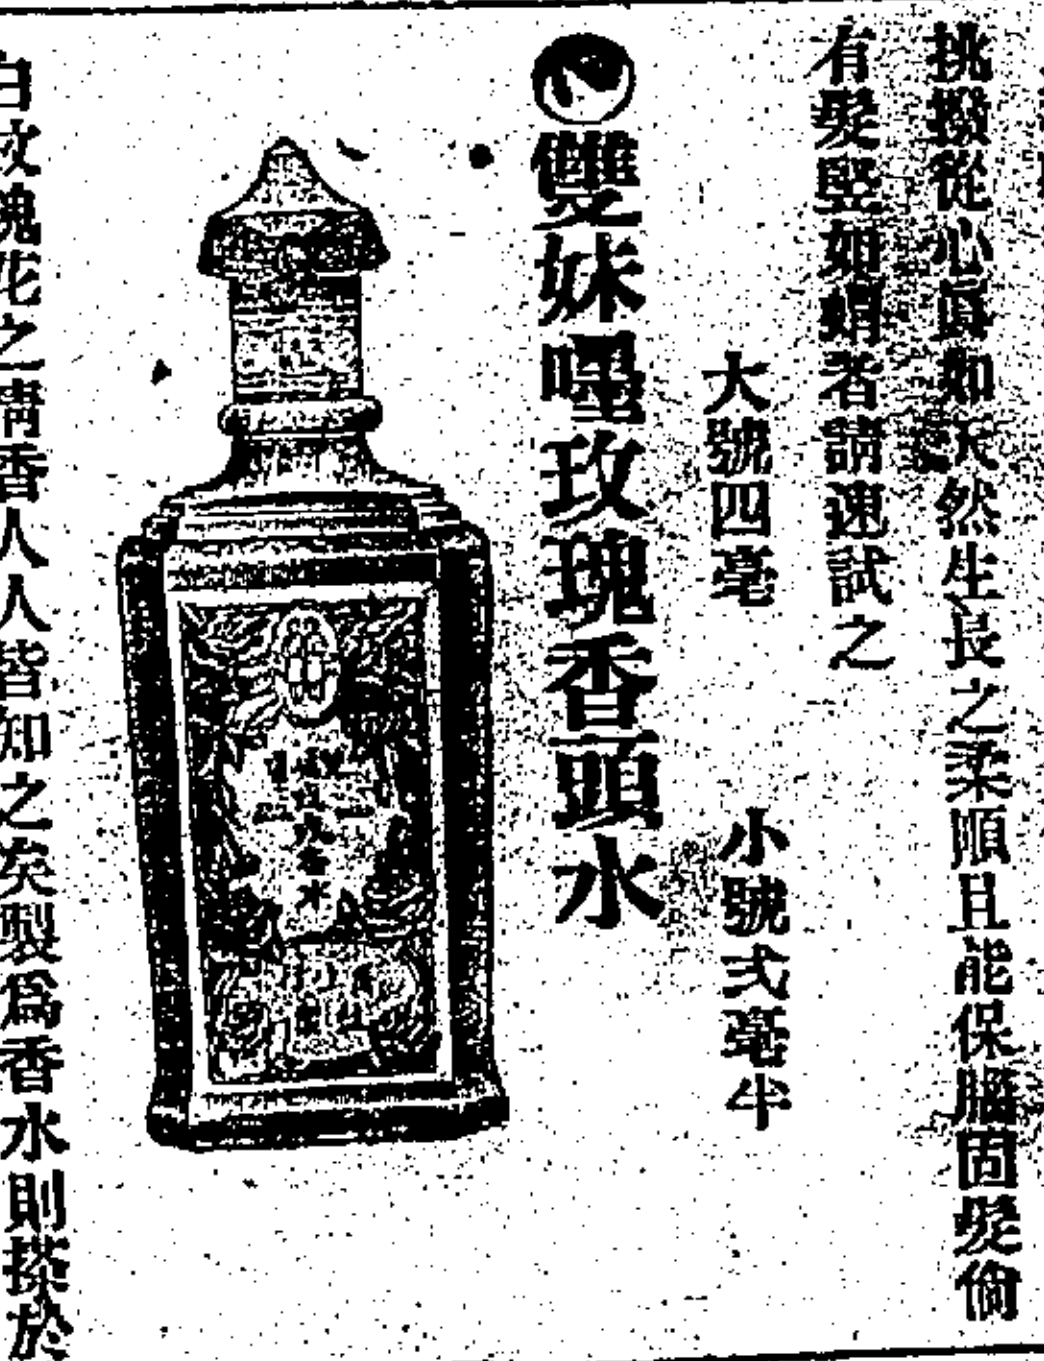 挑撥從心眞如天然生長之柔順且能保腦固髮倘
有髮堅如蝟者請速試之
大號四毫 小號弍毫半
雙妹嘜玫瑰香頭水
白玫瑰花之清香人人皆知之矣製爲香水則搽於